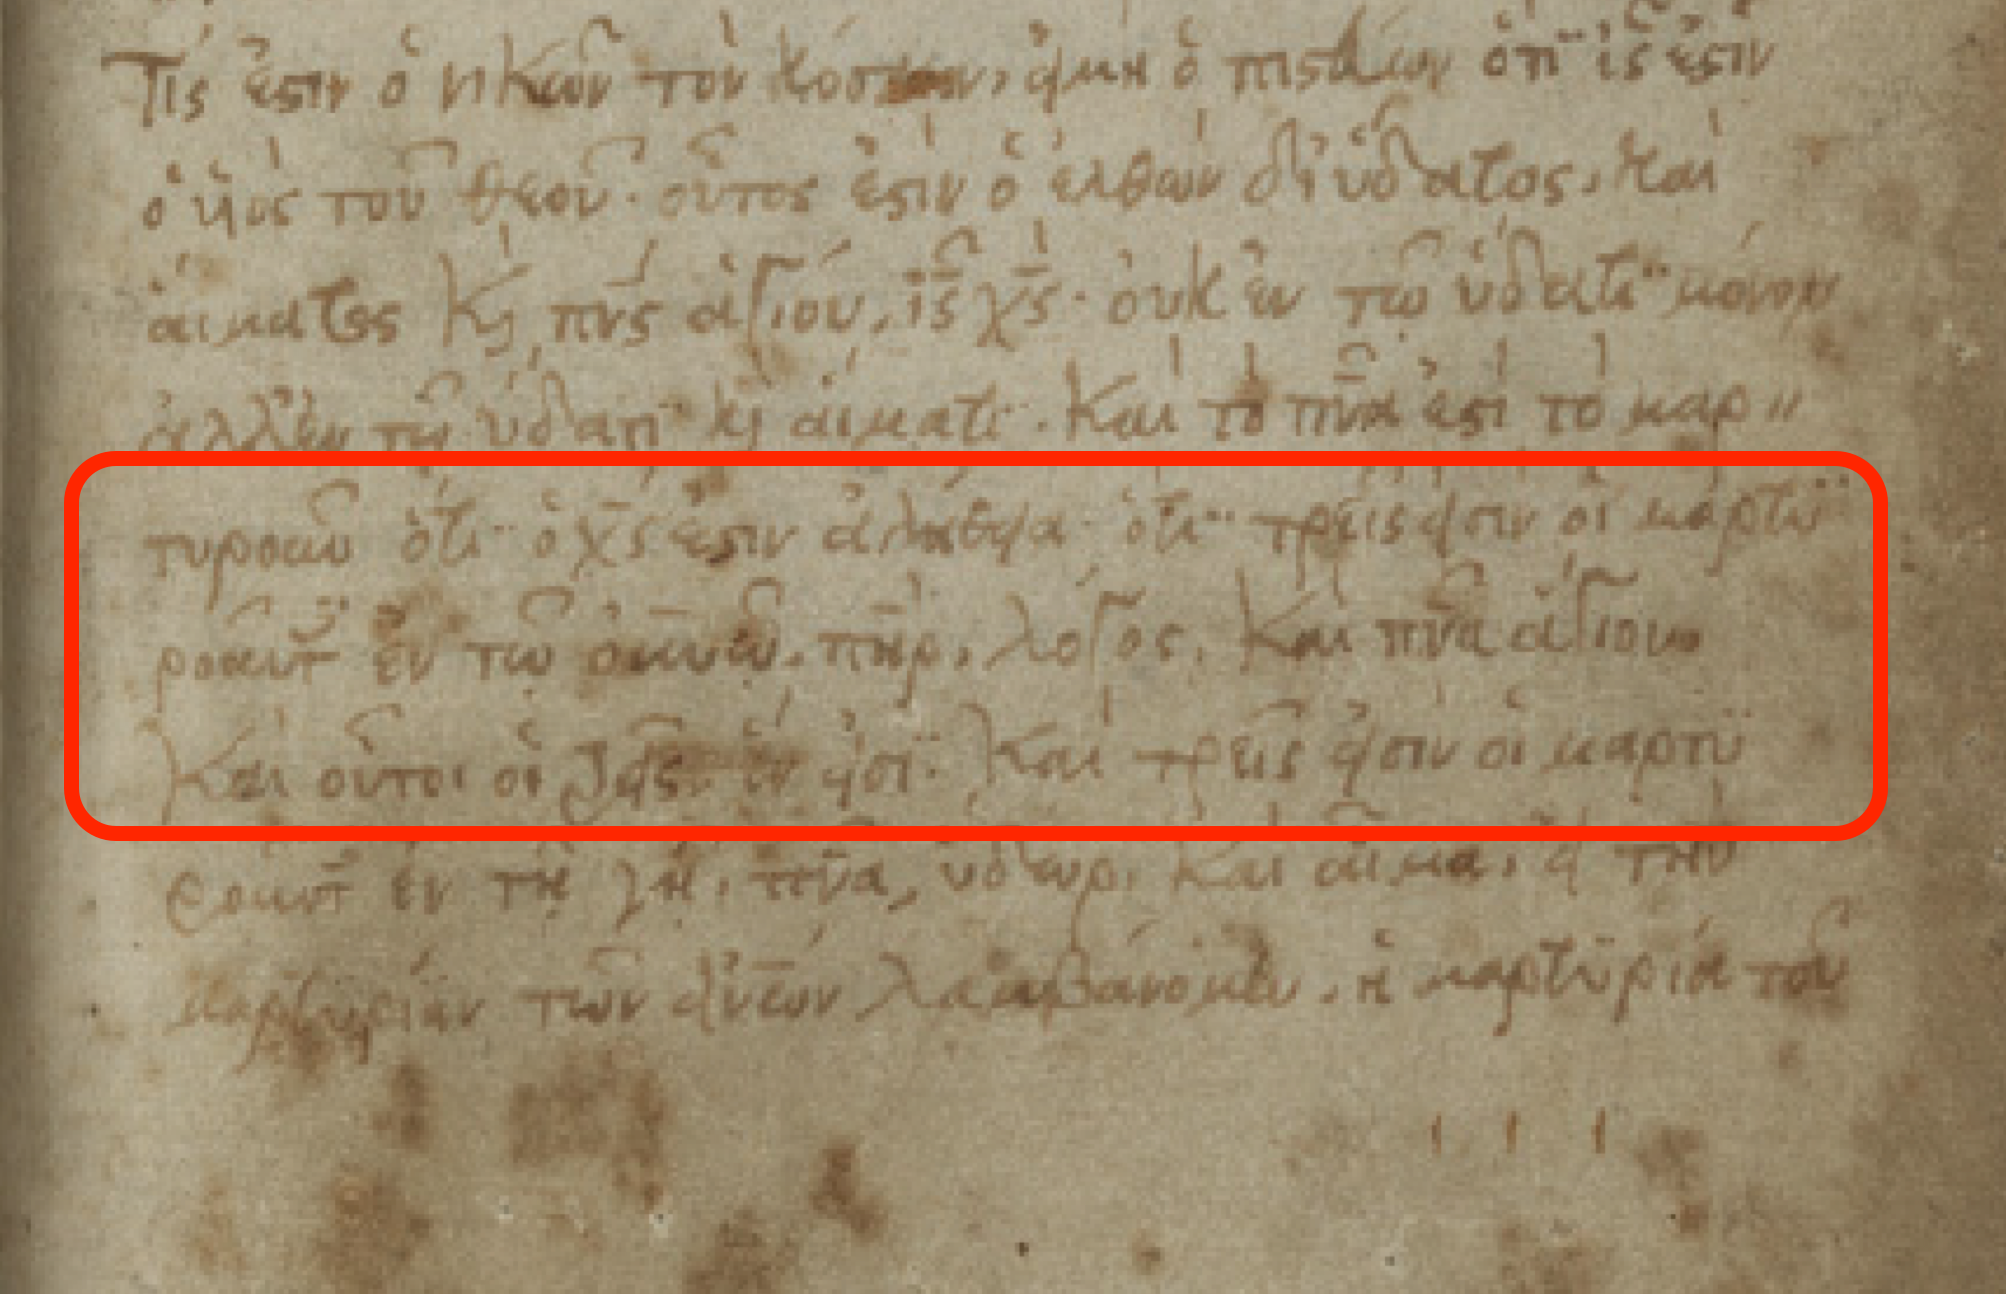 Τίς ἐστιν ὁ νικῶν τὸν κόσμον, εἰμὴ ὁ πιστεύων ὅτι ἰς ἐστιν
ὁ ὑιὸς τοῦ θεοῦ· οὗτος ἐστιν ὁ ἐλθὼν δι' ὕδατος, καὶ
ἅιματος κ̀ πνς ἁγίου, ἰς χς· ὀυκ ἐν τῷ ὕδατι μόνον
ἀλλ' ἐν τῷ ὕδατι κ̀ ἅιματι· Καὶ τὸ πνα ἐστὶ τὸ μαρ〃
τυροῦν ὅτι ὁ χς ἐστιν ἀλήθεια· ὅτι τρεῖς εἰσιν οἱ μαρτυ
ροῦντ ἐν τῷ ὀυνῷ, πηρ, λόγος, Καὶ πνα ἅγιον,
Καὶ οὗτοι οἱ τρεῖς ἕν εἰσι· Καὶ τρεῖς εἰσιν οἱ μαρτυ
ροῦντ ἐν τῇ γῇ, πνα, ὕδωρ, Καὶ αἷμα, εἰ τὴν
μαρτυρίαν τῶν ἀνων λαμβάνομεν, ἡ μαρτυρία τοῦ